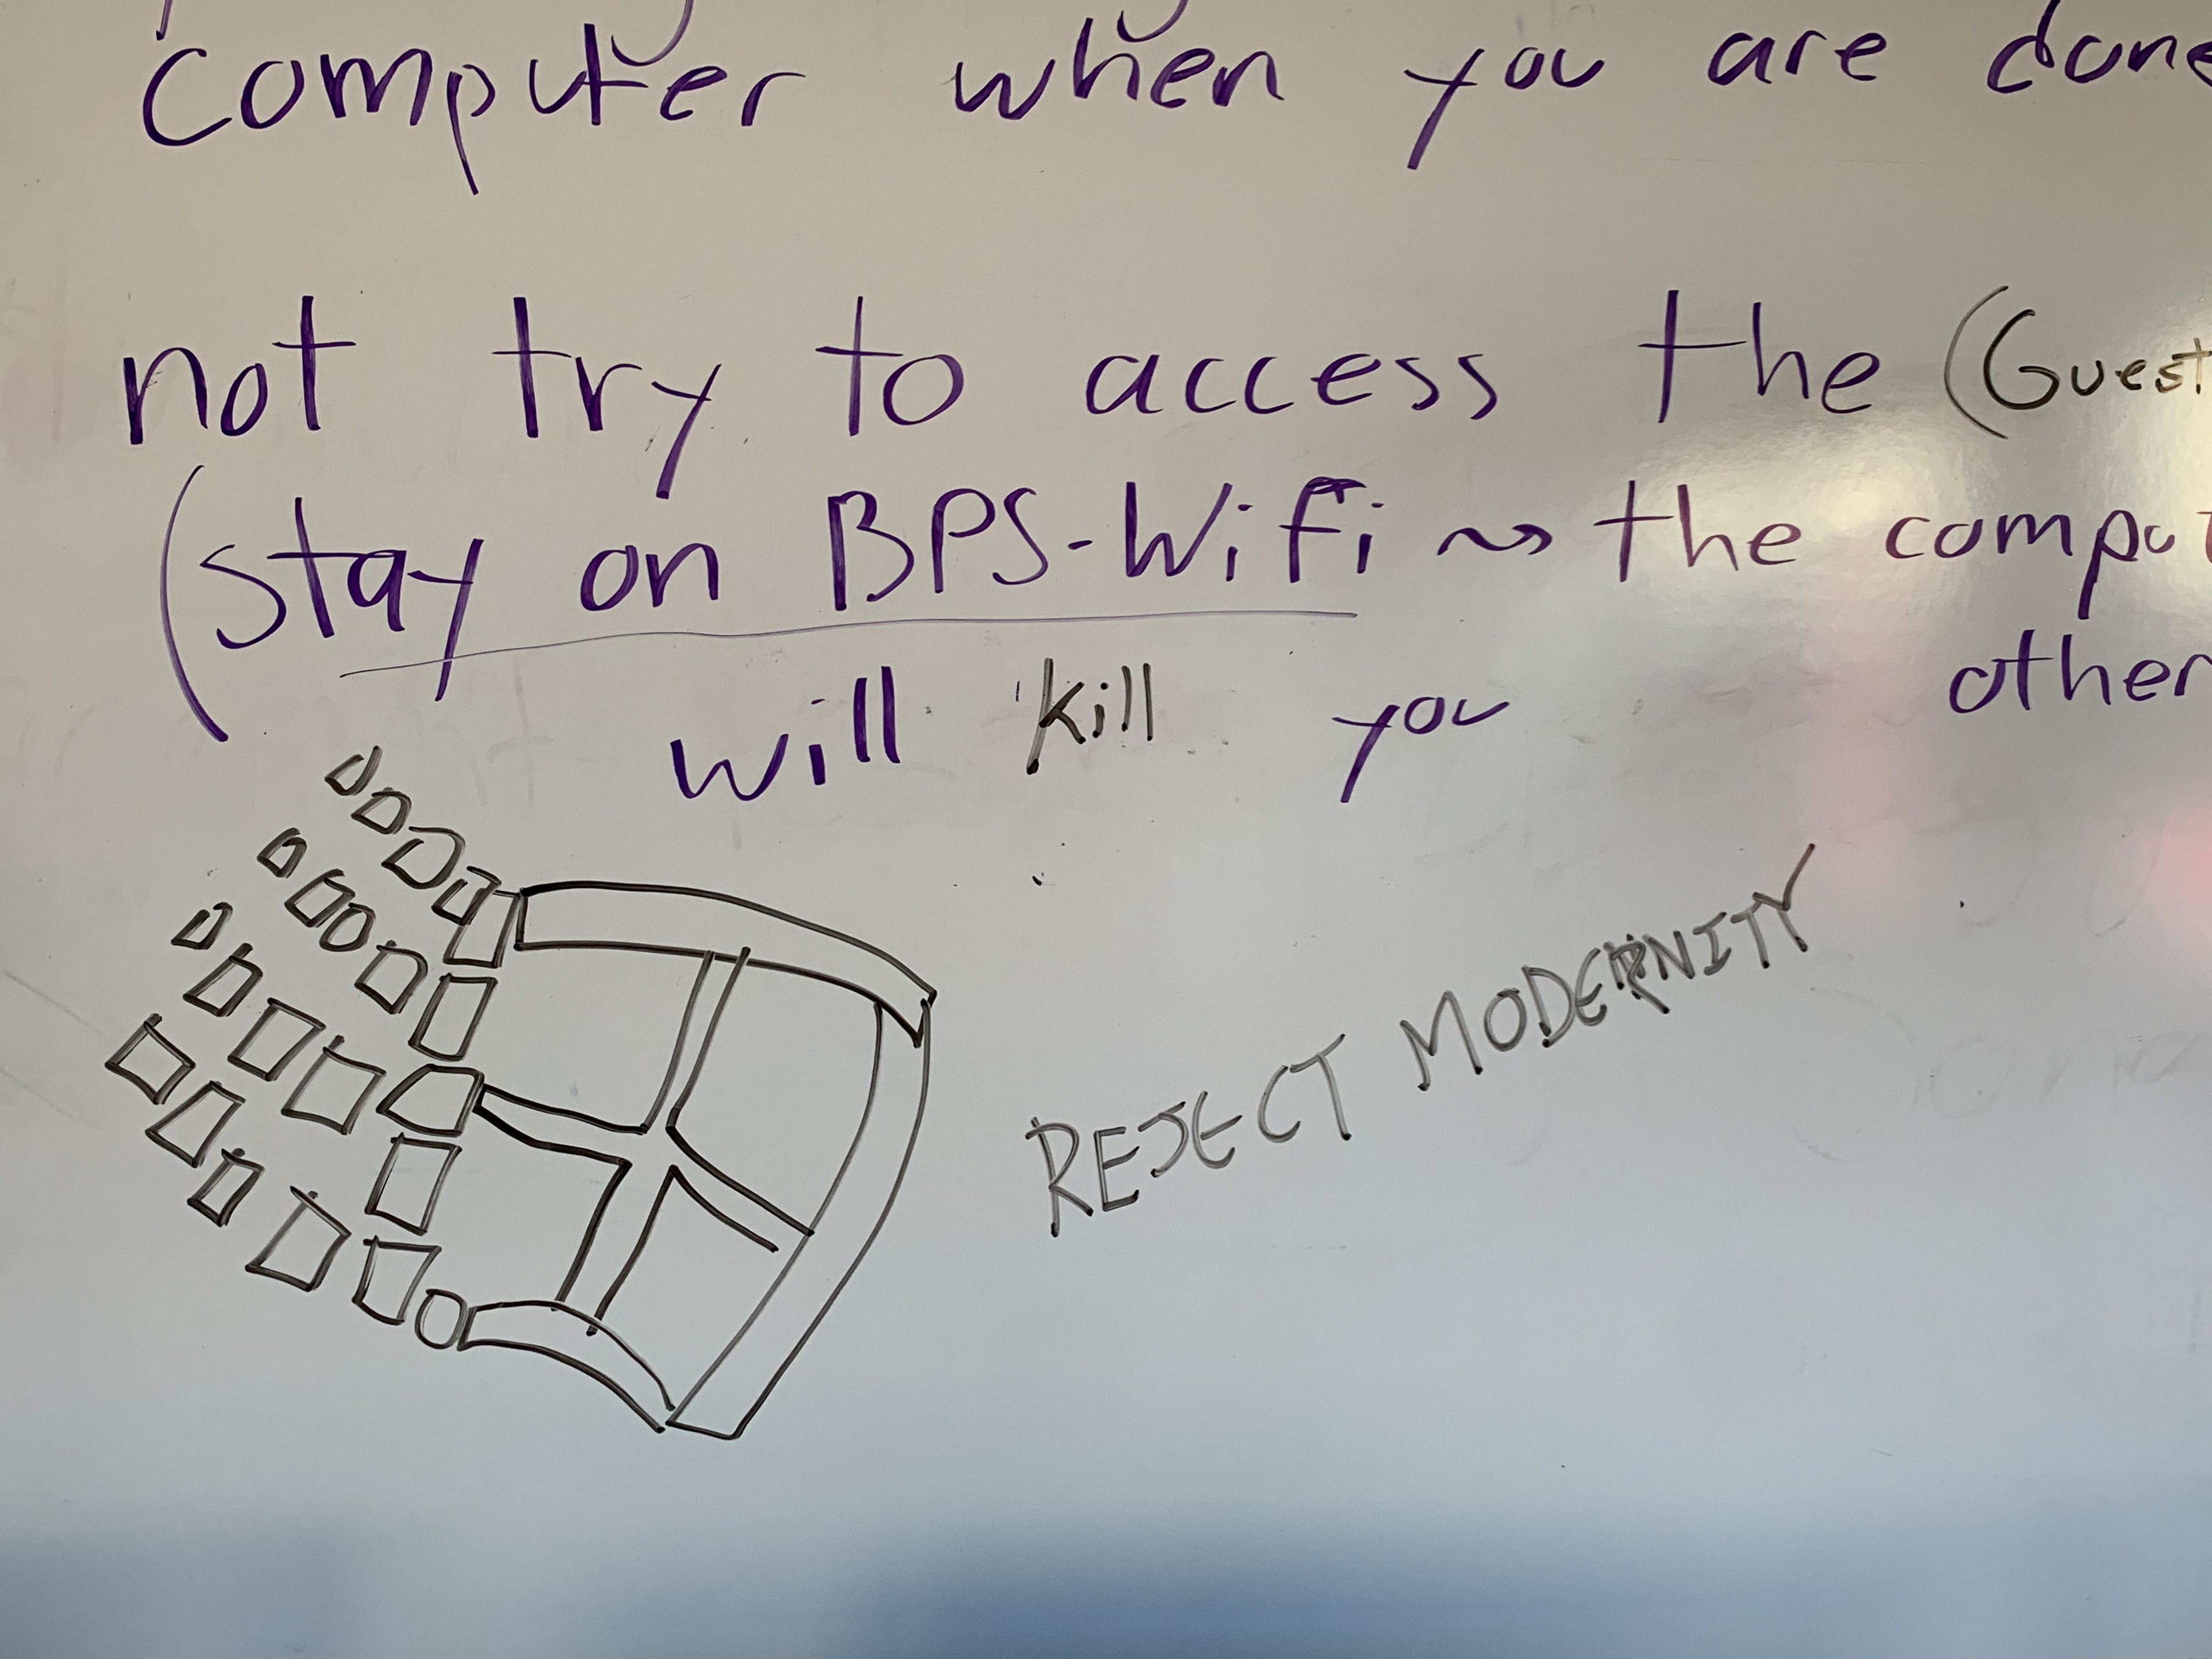 computer when you are done
not try to access the (Guest
(stay on BPS-Wifi ~> the comput
will kill you other
REJECT MODERNITY